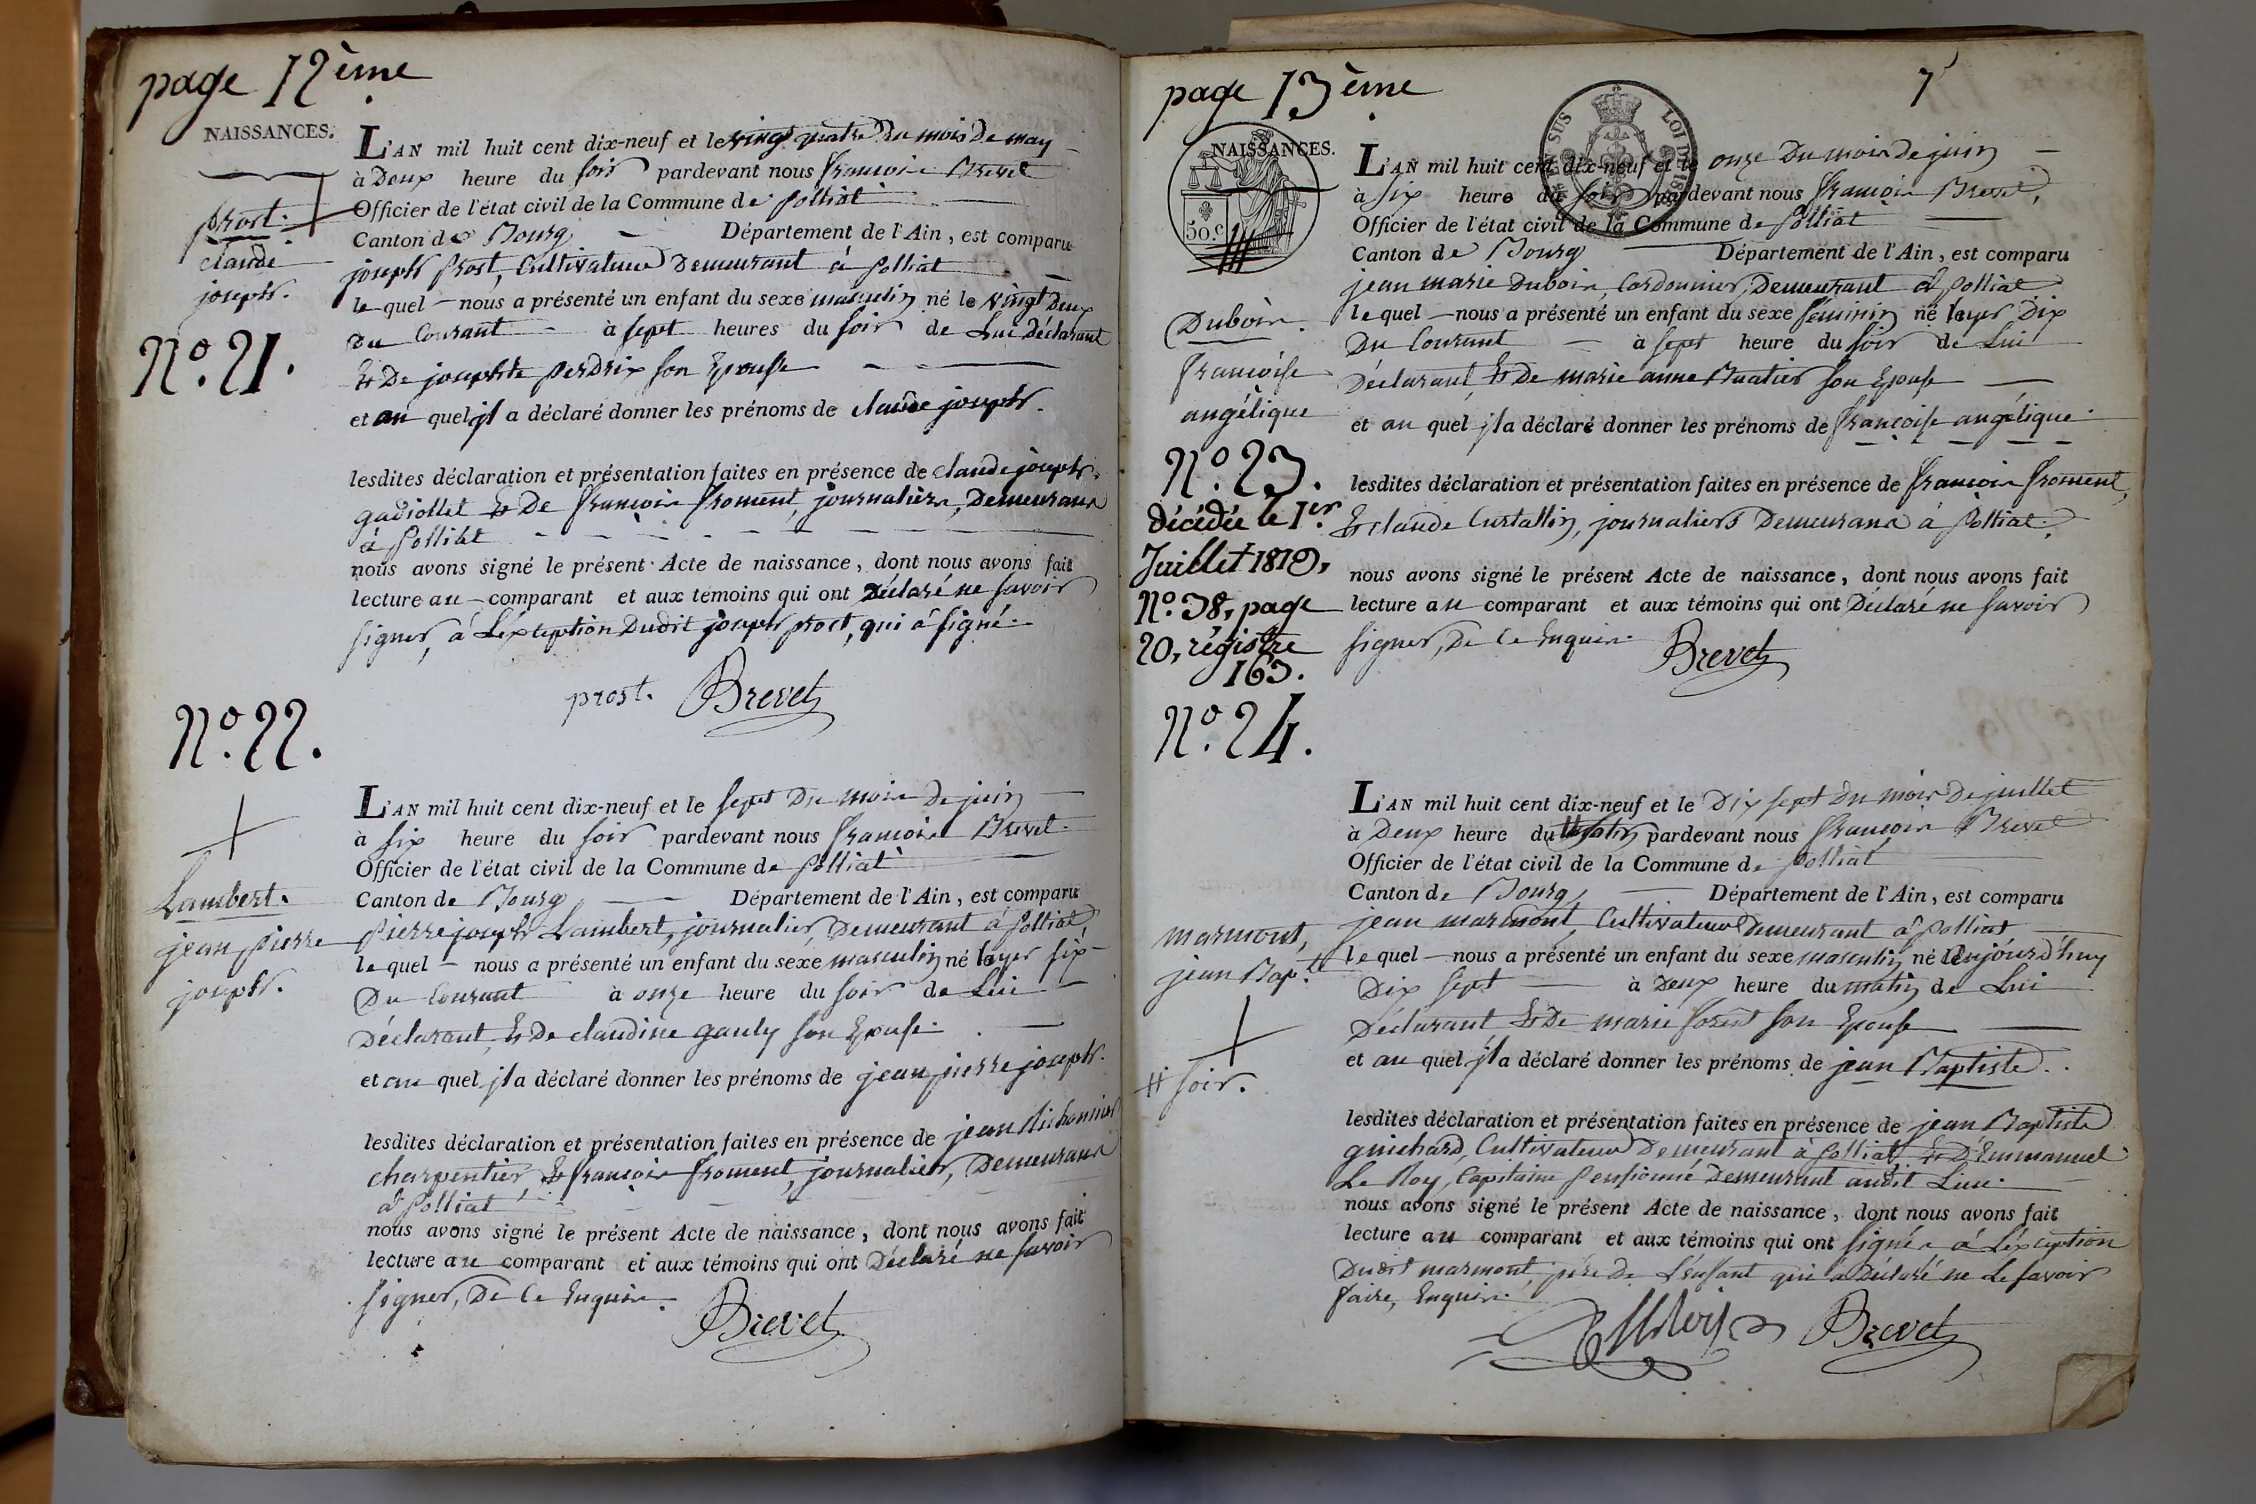 page 12ème
NAISSANCES.
L'AN mil huit cent dix-neuf et le vingt quatre du mois de may
à Deux heure du soir pardevant nous françois Brevet
Officier de l'état civil de la Commune de Polliat
Canton de Bourg Département de l'Ain, est comparu
joseph Prost, Cultivateur Demeurant à Polliat
le quel nous a présenté un enfant du sexe masculin né le vingt Deux
Du Courant à sept heures du soir de Lui Déclarant
Et De josephte Perdrix son Epouse
et au quel jl a déclaré donner les prénoms de claude joseph.
lesdites déclaration et présentation faites en présence de claude joseph
gadiollet Et De françois froment, journaliers, Demeurans
à Polliat
nous avons signé le présent Acte de naissance, dont nous avons fait
lecture au comparant et aux témoins qui ont Déclaré ne savoir
signer, à L'éxception Dudit joseph prost, qui à signé.
prost. Brevet
Prost.
claude
joseph.
No. 21.
No. 22.
L'AN mil huit cent dix-neuf et le sept Du mois De juin
à six heure du soir pardevant nous françois Brevet
Officier de l'état civil de la Commune de Polliat
Canton de Bourg Département de l'Ain, est comparu
Pierre joseph Lambert, journalier, Demeurant à Polliat
le quel nous a présenté un enfant du sexe masculin né le yer six
Du Courant à onze heure du soir de Lui
Déclarant, Et De claudine gauly son Epouse.
et au quel jl a déclaré donner les prénoms de jean pierre joseph.
lesdites déclaration et présentation faites en présence de jean
charpentier, Et françois froment, journalier, Demeurans
à Polliat
nous avons signé le présent Acte de naissance, dont nous avons fait
lecture au comparant et aux témoins qui ont Déclaré ne savoir
signer, De Ce Enquis.
Brevet
Lambert.
jean pierre
joseph.
page 13ème
7
SUS LOI DE 181
NAISSANCES.
50.c
L'AN mil huit cent dix-neuf et le onze Du mois de juin
à six heure du soir pardevant nous françois Brevet,
Officier de l'état civil de la Commune de Polliat
Canton de Bourg Département de l'Ain, est comparu
jean marie Dubois, Cordonnier, Demeurant à Polliat
le quel nous a présenté un enfant du sexe féminin né le yer Dix
Du Courant à sept heure du soir de Lui
Déclarant, Et De marie anne Buatier son Epouse
et au quel jl a déclaré donner les prénoms de françoise angélique.
lesdites déclaration et présentation faites en présence de françois froment,
Et claude Curtallin, journaliers Demeurans à Polliat.
nous avons signé le présent Acte de naissance, dont nous avons fait
lecture au comparant et aux témoins qui ont Déclaré ne savoir
signer, De Ce Enquis.
Brevet
Dubois.
françoise
angélique
No. 23.
décédée le 1er.
Juillet 1819,
No. 38, page
20, régistre
163.
No. 24.
L'AN mil huit cent dix-neuf et le Dix sept Du mois De juillet
à Deux heure du # pardevant nous françois Brevet
Officier de l'état civil de la Commune de Polliat
Canton de Bourg, Département de l'Ain, est comparu
jean marmont, Cultivateur Demeurant à Polliat
le quel nous a présenté un enfant du sexe masculin né Cejourd'huy
Dix sept à Deux heure du matin de Lui
Déclarant Et De marie forest son Epouse
et au quel jl a déclaré donner les prénoms de jean Baptiste.
lesdites déclaration et présentation faites en présence de jean Baptiste
guichard, Cultivateur Demeurant à Polliat, Et D'Emmanuel
Le Roy, Capitaine Pensionné Demeurant audit Lieu.
nous avons signé le présent Acte de naissance, dont nous avons fait
lecture au comparant et aux témoins qui ont signés à L'éxception
Dudit marmont, père De L'enfant qui a Déclaré ne Le savoir
faire, Enquis.
Brevet
marmont,
jean Bap.te
# soir.